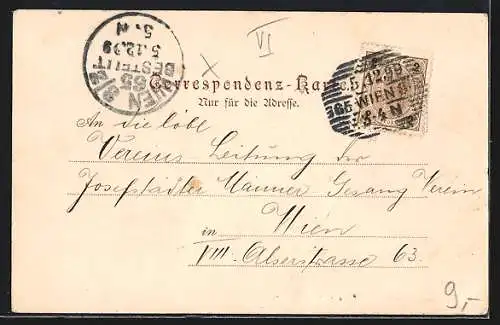 VI
WIEN 8/2
65
BESTELLT
5.12.99
5.N
Correspondenz-Karte.
Nur für die Adresse.
5.12.99
65 WIEN 8
4 N
An die löbl
Vereins Leitung der
Josefstädter Männer Gesang Verein
in Wien
VIII Alserstrasse 63.
9,-